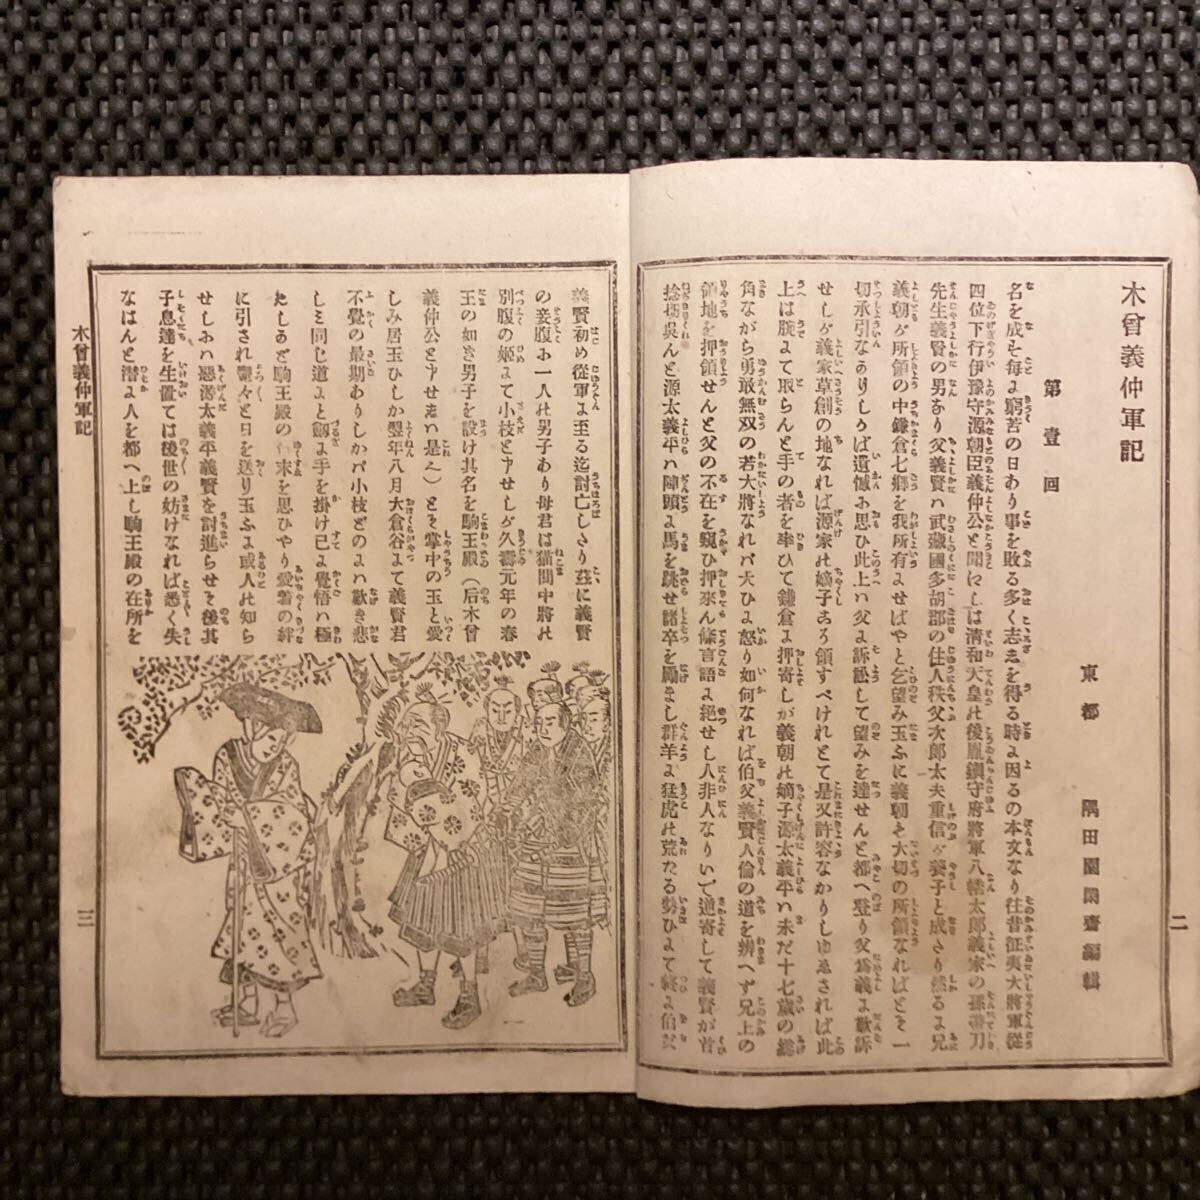 木曾義仲軍記
東都 隅田園閑齋編輯
第壹回
名を成そ毎ょ窮苦の日あり事を敗る多く志しを得る時ょ因るの本文なり往昔征夷大將軍從
四位下行伊豫守源朝臣義仲公と聞ヘしは清和天皇の後胤鎭守府將軍八幡太郎義家の孫帶刀
先生義賢の男なり父義賢ハ武藏國多胡郡の住人秩父次郎太夫重信が養子と成さり然るょ兄
義朝が所領の中鎌倉七郷を我所有ょせばやと乞望み玉ふに義朝そ大切の所領なればとそ一
切承引なありしらば遺憾ふ思ひ此上ハ父ょ訴訟して望みを達せんと都へ登り父爲義ょ歎訴
せしが義家草創の地なれば源家の嫡子ある領すべけれとて是又許容なかりしゆゑされば此
上は腕ょて取らんと手の者を率ひて鎌倉ょ押寄しが義朝の嫡子源太義平ハ未だ十七歳の總
角ながら勇敢無双の若大將なれバ大ひょ怒り如何なれば伯父義賢人倫の道を辨へず兄上の
領地を押領せんと父の不在を窺ひ押來ん條言語ょ絶せし人非人なりいで逆寄して義賢が首
捻切呉んと源太義平ハ陣頭ょ馬を跳せ諸卒を勵まし群羊ょ猛虎の荒たる勢ひょて終ょ伯父
義賢初め從軍ょ至る迄討亡しさり茲に義賢
の妾腹ふ一人の男子あり母君は猫間中將の
別腹の姫ょて小枝と申せしが久壽元年の春
王の如き男子を設け其名を駒王殿（后木曾
義仲公と申せしハ是人）とそ掌中の玉と愛
しみ居玉ひしか翌年八月大倉谷ょて義賢君
不覺の最期ありしかバ小枝どのょハ歎き悲
しミ同じ道ょと劔ょ手を掛け己ょ覺悟ハ極
たしるど駒王殿の行末を思ひやり愛着の絆
に引され鬱々と日を送り玉ふょ或人の知ら
せしふハ惡源太義平義賢を討進らせそ後其
子息達を生置ては後世の妨けなれば悉く失
なはんと潜ょ人を都へ上し駒王殿の在所を
木曾義仲軍記
二
三